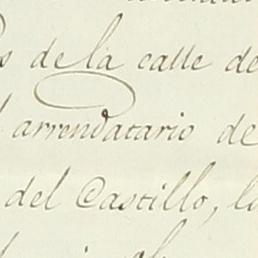 de la calle de
arrendatario de
del Castillo,